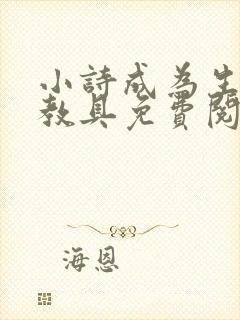 小詩成為生
教具免費閱
海恩